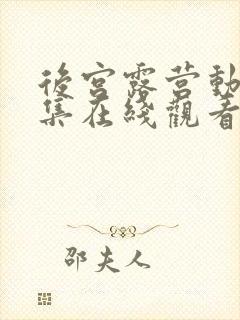 後宮露营動
集在綫觀看
邵夫人